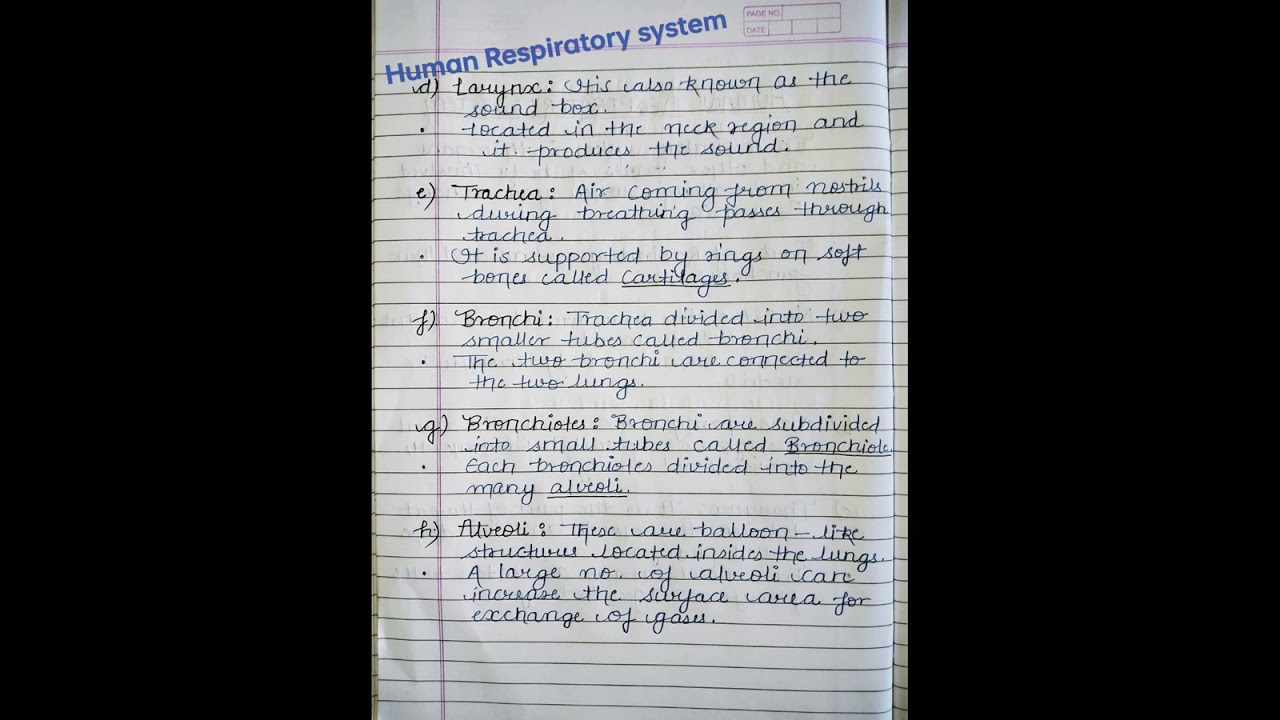 PAGE NO
DATE
Human Respiratory system
d) Larynx: It is also known as the
sound box.
• Located in the neck region and
it produces the sound.
e) Trachea: Air coming from nostrils
during breathing passes through
trachea.
• It is supported by rings on soft
bones called Cartilages.
f) Bronchi: Trachea divided into two
smaller tubes called bronchi.
• The two bronchi are connected to
the two lungs.
g) Bronchioles: Bronchi are subdivided
into small tubes called Bronchiole.
• Each bronchioles divided into the
many alveoli.
h) Alveoli: These are balloon-like
structures located insides the lungs.
• A large no. of alveoli can
increase the surface area for
exchange of gases.